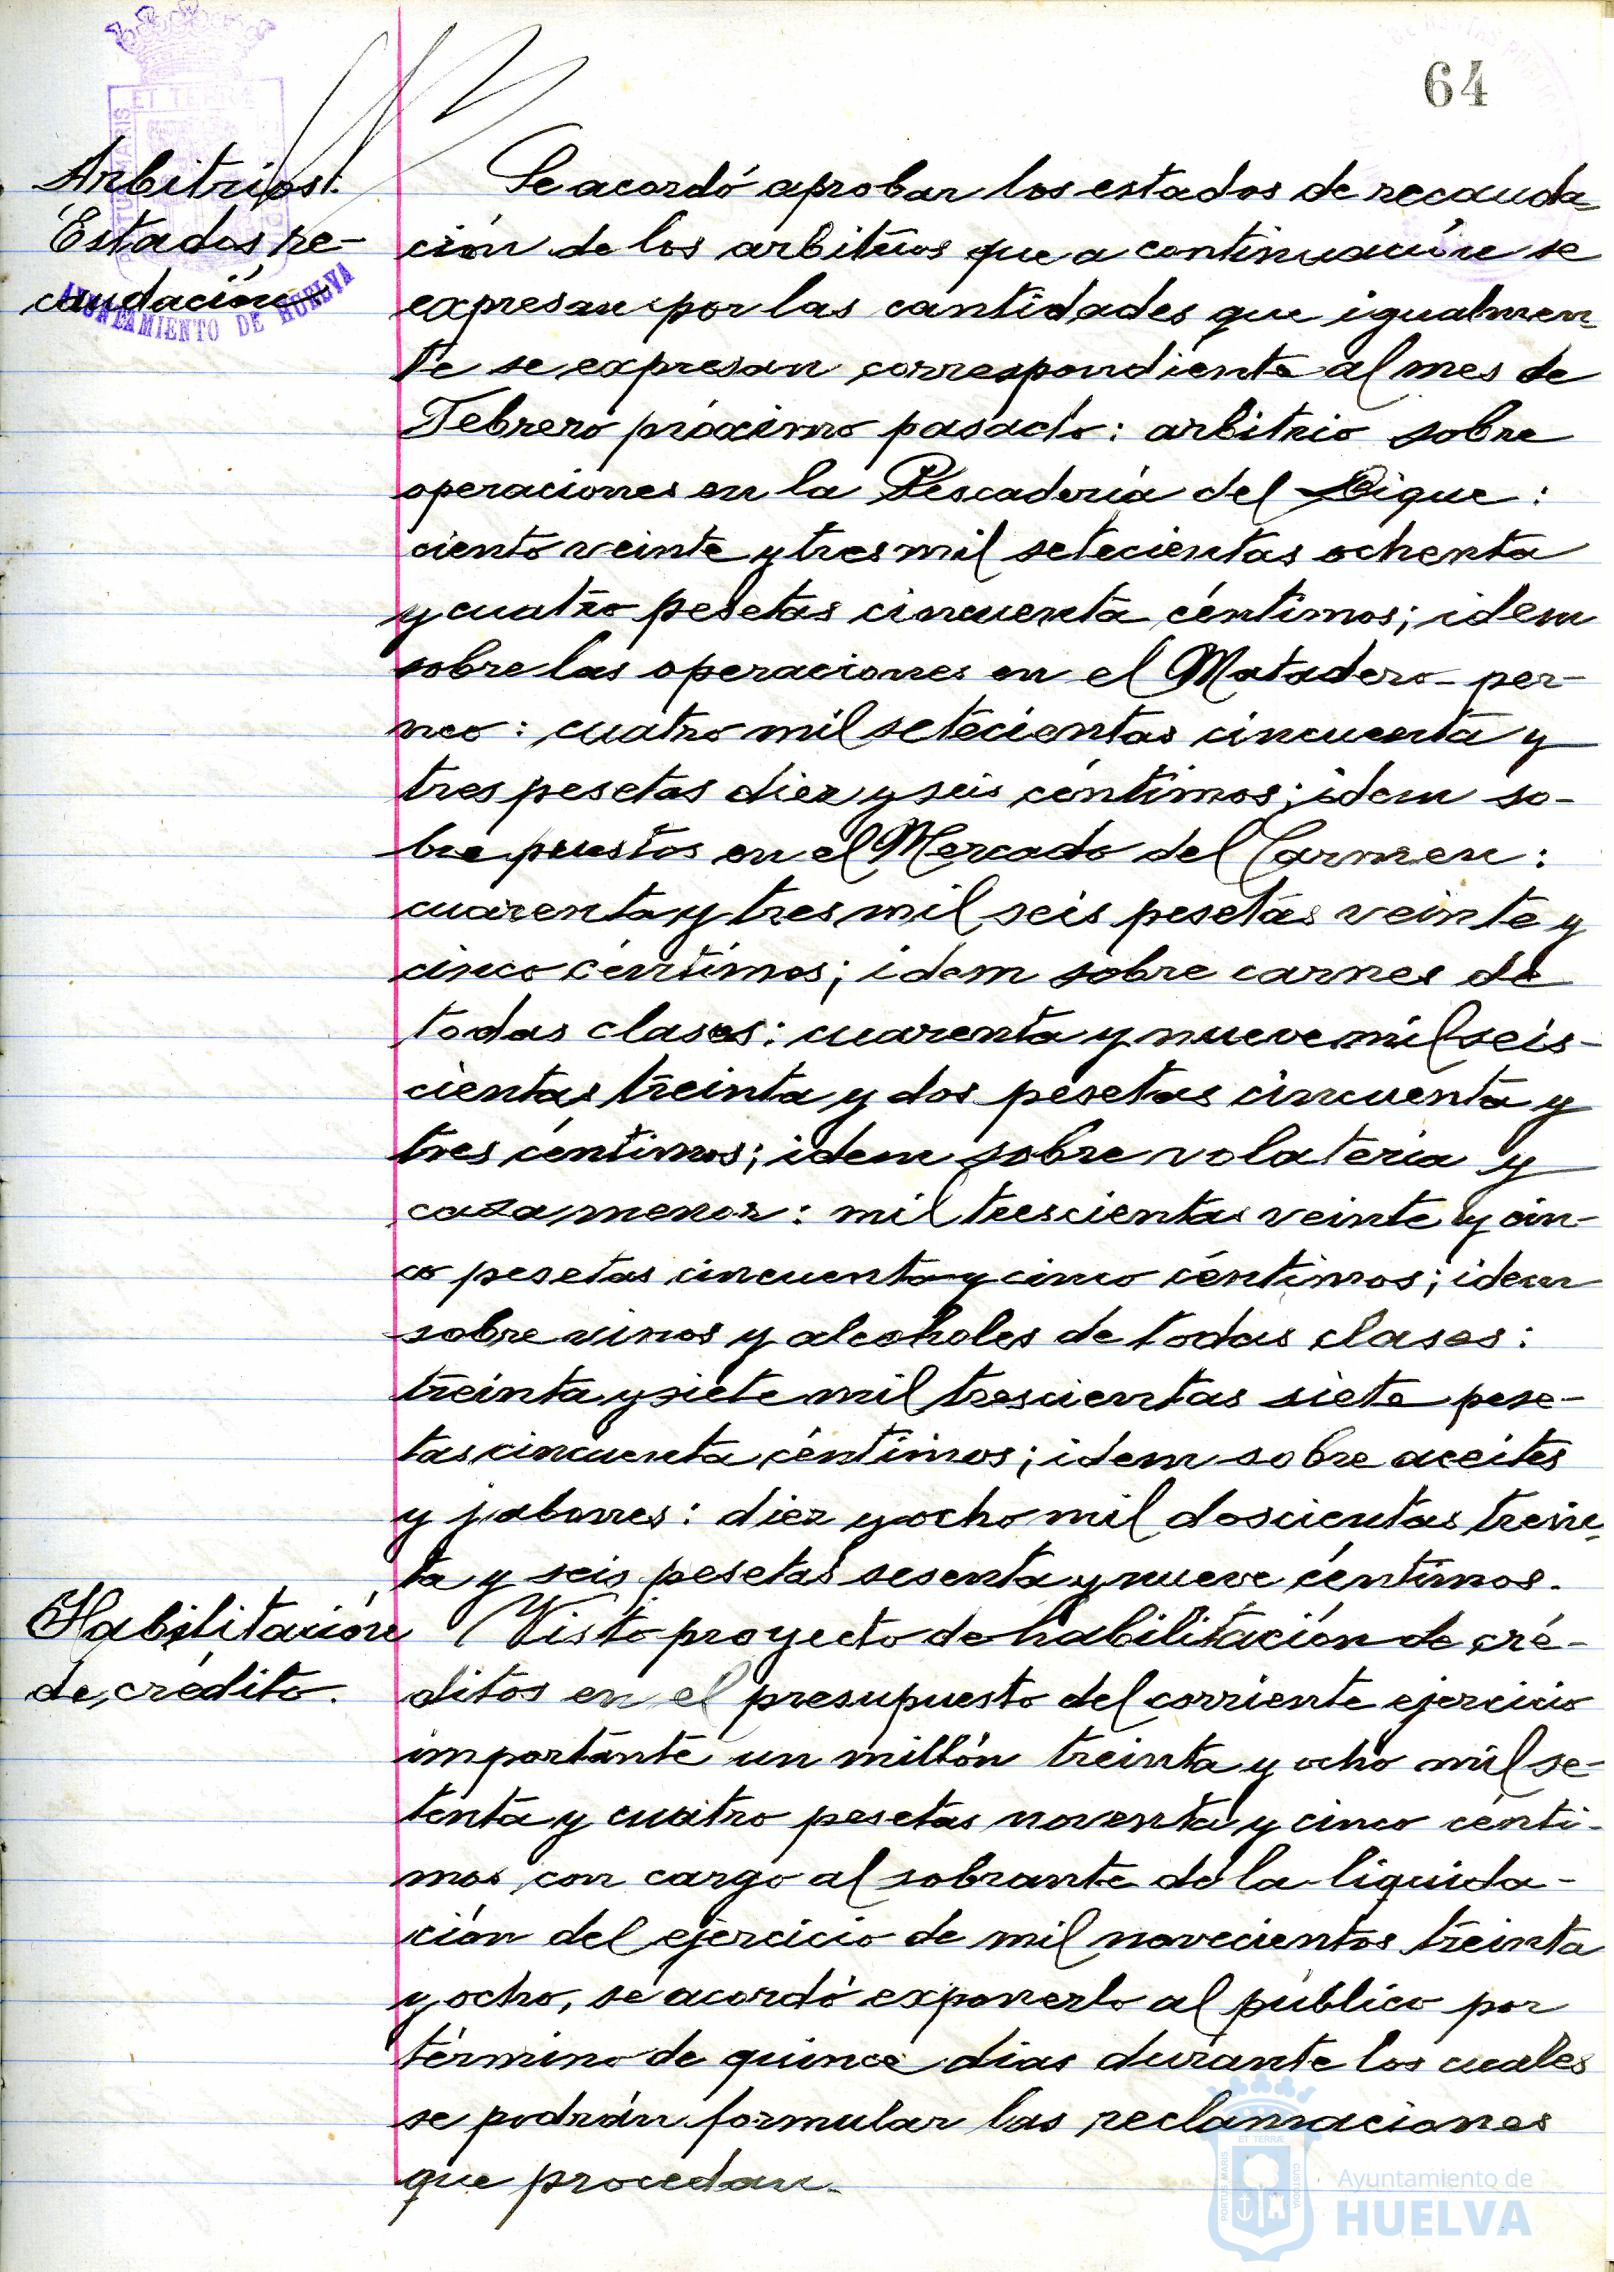 64
Arbitrios.
Estados re-
caudación
AYUNTAMIENTO DE HUELVA
ET TERRE
Se acordó aprobar los estados de recauda-
ción de los arbitrios que a continuación se
expresan por las cantidades que igualmen-
te se expresan correspondiente al mes de
Febrero próximo pasado: arbitrio sobre
operaciones en la Pescadería del Dique:
ciento veinte y tres mil setecientas ochenta
y cuatro pesetas cincuenta céntimos; idem
sobre las operaciones en el Matadero-per-
neo: cuatro mil setecientas cincuenta y
tres pesetas diez y seis céntimos; idem so-
bre puestos en el Mercado del Carmen:
cuarenta y tres mil seis pesetas veinte y
cinco céntimos; idem sobre carnes de
todas clases: cuarenta y nueve mil seis-
cientas treinta y dos pesetas cincuenta y
tres céntimos; idem sobre volatería y
caza menor: mil trescientas veinte y cin-
co pesetas cincuenta y cinco céntimos; idem
sobre vinos y alcoholes de todas clases:
treinta y siete mil trescientas siete pese-
tas cincuenta céntimos; idem sobre aceites
y jabones: diez y ocho mil doscientas trein-
ta y seis pesetas sesenta y nueve céntimos.
Habilitación
de crédito.
Visto proyecto de habilitación de cré-
ditos en el presupuesto del corriente ejercicio
importante un millón treinta y ocho mil se-
tenta y cuatro pesetas noventa y cinco cénti-
mos con cargo al sobrante de la liquida-
ción del ejercicio de mil novecientos treinta
y ocho, se acordó exponerlo al público por
término de quince dias durante los cuales
se podrán formular las reclamaciones
que procedan.
PORTUS MARIS
ET TERRÆ
CUSTODIA
Ayuntamiento de
HUELVA